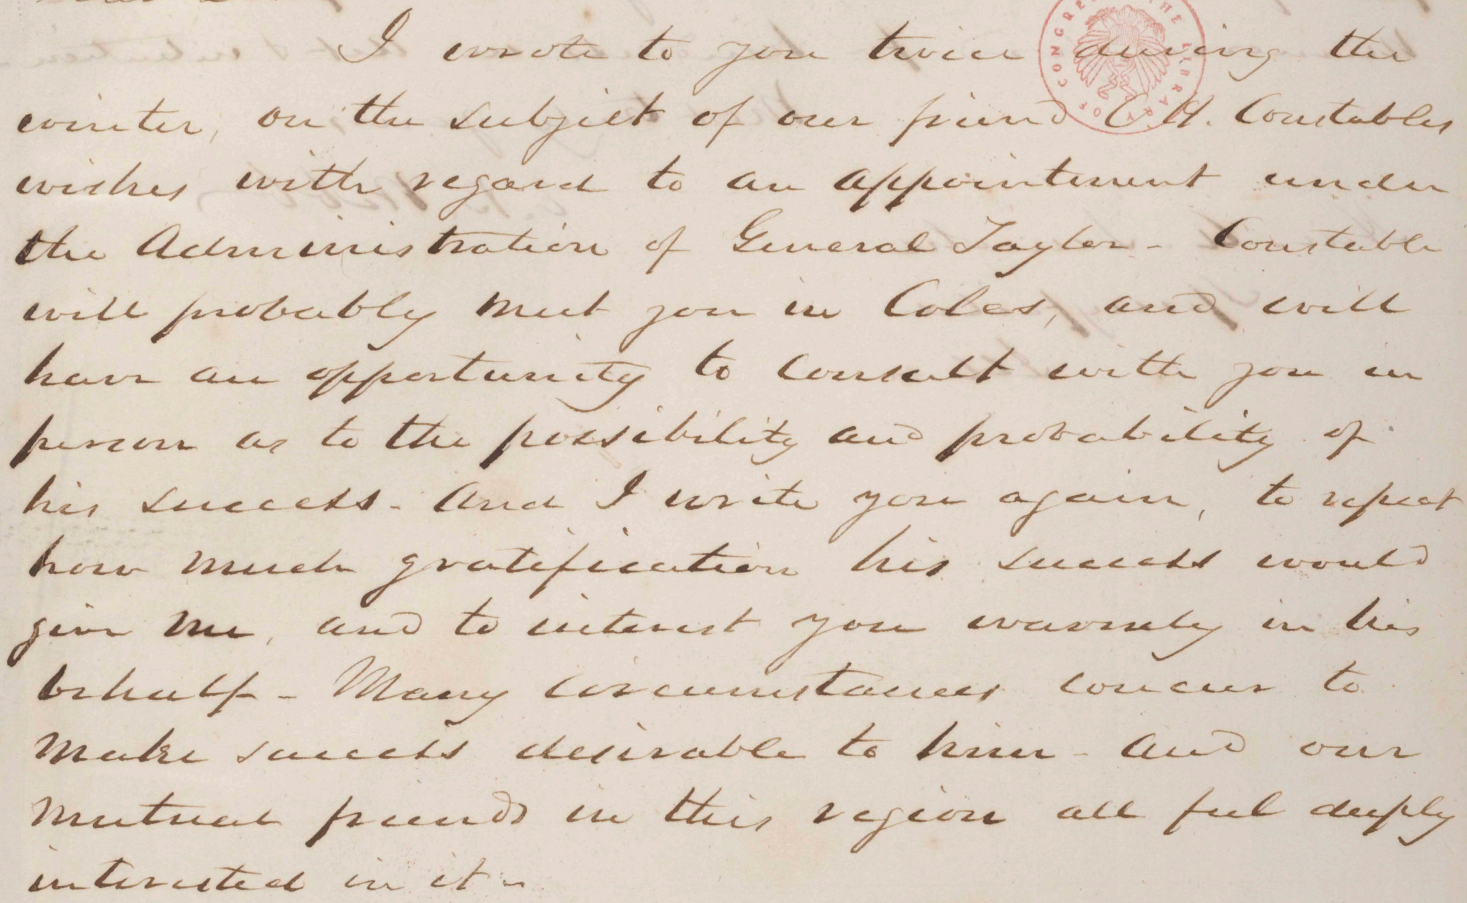 I wrote to you twice during the
winter, on the subject of our friend C. H. Constables
wishes with regard to an appointment under
the Administration of General Taylor - Constable
will probably meet you in Coles, and will
have an opportunity to consult with you in
person as to the possibility and probability of
his success - And I write you again, to repeat
how much gratification his success would
give me, and to interest you warmly in his
behalf - Many circumstances concur to
make success desirable to him - And our
mutual friends in this region all feel deeply
interested in it -